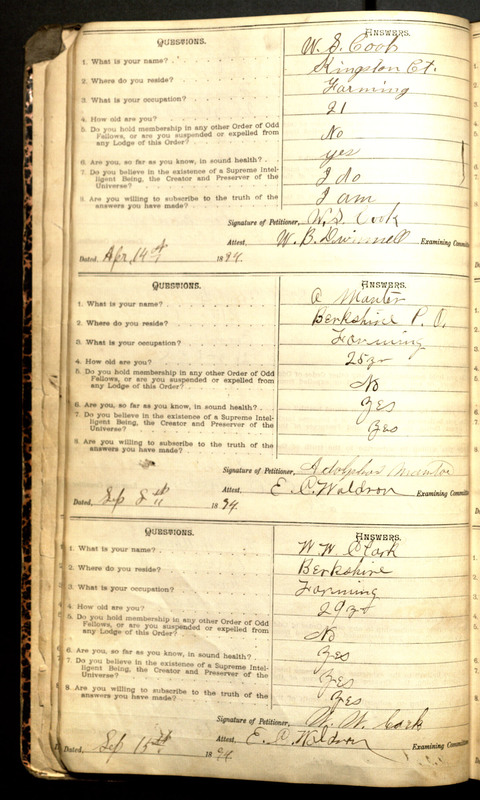 QUESTIONS. ANSWERS.
1. What is your name? W. S. Cook
2. Where do you reside? Kingston Ct.
3. What is your occupation? Farming
4. How old are you? 21
5. Do you hold membership in any other Order of Odd
Fellows, or are you suspended or expelled from
any Lodge of this Order? No
6. Are you, so far as you know, in sound health? yes
7. Do you believe in the existence of a Supreme Intel-
ligent Being, the Creator and Preserver of the
Universe? I do
8. Are you willing to subscribe to the truth of the
answers you have made? I am
Signature of Petitioner, W. S. Cook
Attest, W. B. Dwinnell Examining Committ
Dated, Apr. 14th 1894.
QUESTIONS. ANSWERS.
1. What is your name? A Manter
2. Where do you reside? Berkshire P. O.
3. What is your occupation? Farming
4. How old are you? 25 yr
5. Do you hold membership in any other Order of Odd
Fellows, or are you suspended or expelled from
any Lodge of this Order? No
6. Are you, so far as you know, in sound health? Yes
7. Do you believe in the existence of a Supreme Intel-
ligent Being, the Creator and Preserver of the
Universe? Yes
8. Are you willing to subscribe to the truth of the
answers you have made?
Signature of Petitioner, Adolphus
Attest, E. C. Waldron Examining Committ
Dated, Sep 8th 1894.
QUESTIONS. ANSWERS.
1. What is your name? W. W. Clark
2. Where do you reside? Berkshire
3. What is your occupation? Farming
4. How old are you? 29 yr
5. Do you hold membership in any other Order of Odd
Fellows, or are you suspended or expelled from
any Lodge of this Order? No
6. Are you, so far as you know, in sound health? Yes
7. Do you believe in the existence of a Supreme Intel-
ligent Being, the Creator and Preserver of the
Universe? Yes
8. Are you willing to subscribe to the truth of the
answers you have made? Yes
Signature of Petitioner, W. W. Clark
Attest, E. C. Waldron Examining Committ
Dated, Sep 15th 1894